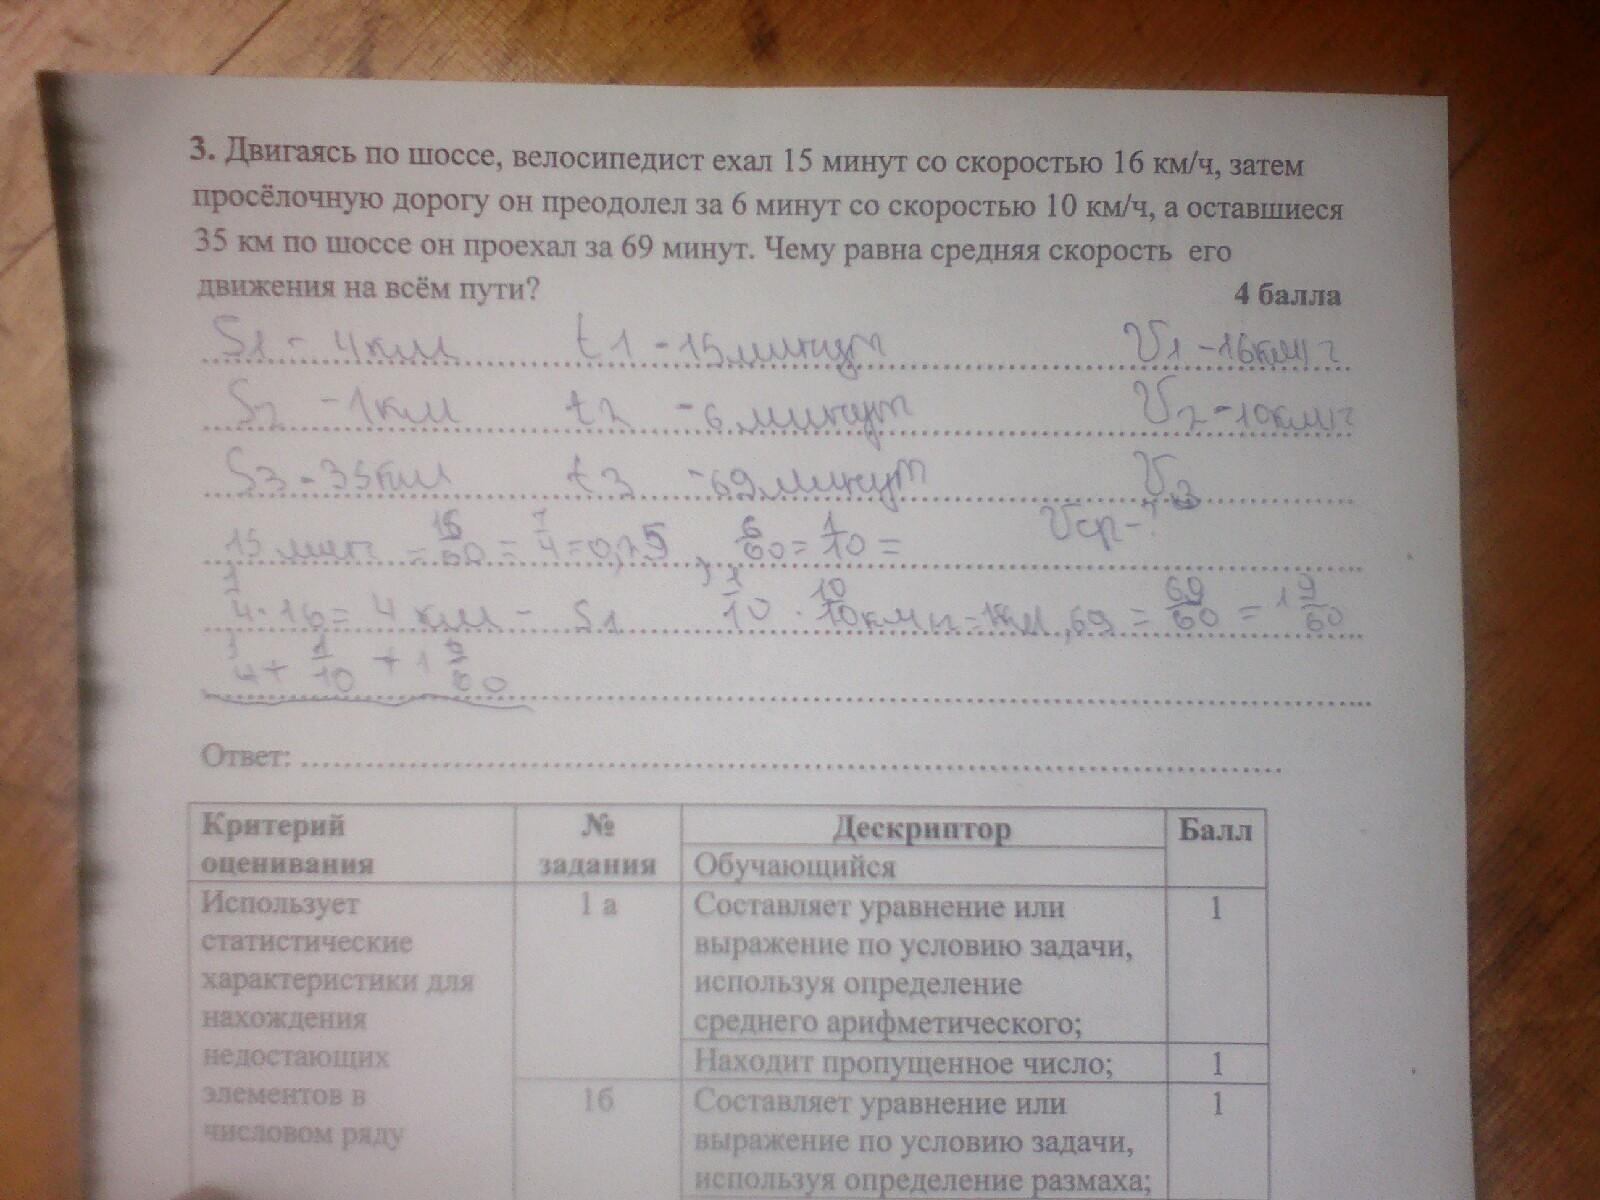 3. Двигаясь по шоссе, велосипедист ехал 15 минут со скоростью 16 км/ч, затем
просёлочную дорогу он преодолел за 6 минут со скоростью 10 км/ч, а оставшиеся
35 км по шоссе он проехал за 69 минут. Чему равна средняя скорость его
движения на всём пути? 4 балла
S1 - 4км t1 - 15минут V1 - 16км/ч
S2 - 1км t2 - 6 минут V2 - 10км/ч
S3 - 35км t3 - 69минут V3
15 мин = 15/60 = 1/4 = 0,25, 6/60 = 1/10 = Vср - ?
1/4 · 16 = 4 км - S1 1/10 · 10/10 км/ч = 1км, 69 = 69/60 = 1 9/60
1/4 + 1/10 + 1 9/60
Ответ:
Критерий оценивания № задания Дескриптор Балл
Обучающийся
Использует 1 а Составляет уравнение или 1
статистические выражение по условию задачи,
характеристики для используя определение
нахождения среднего арифметического;
недостающих Находит пропущенное число; 1
элементов в 1б Составляет уравнение или 1
числовом ряду выражение по условию задачи,
используя определение размаха;